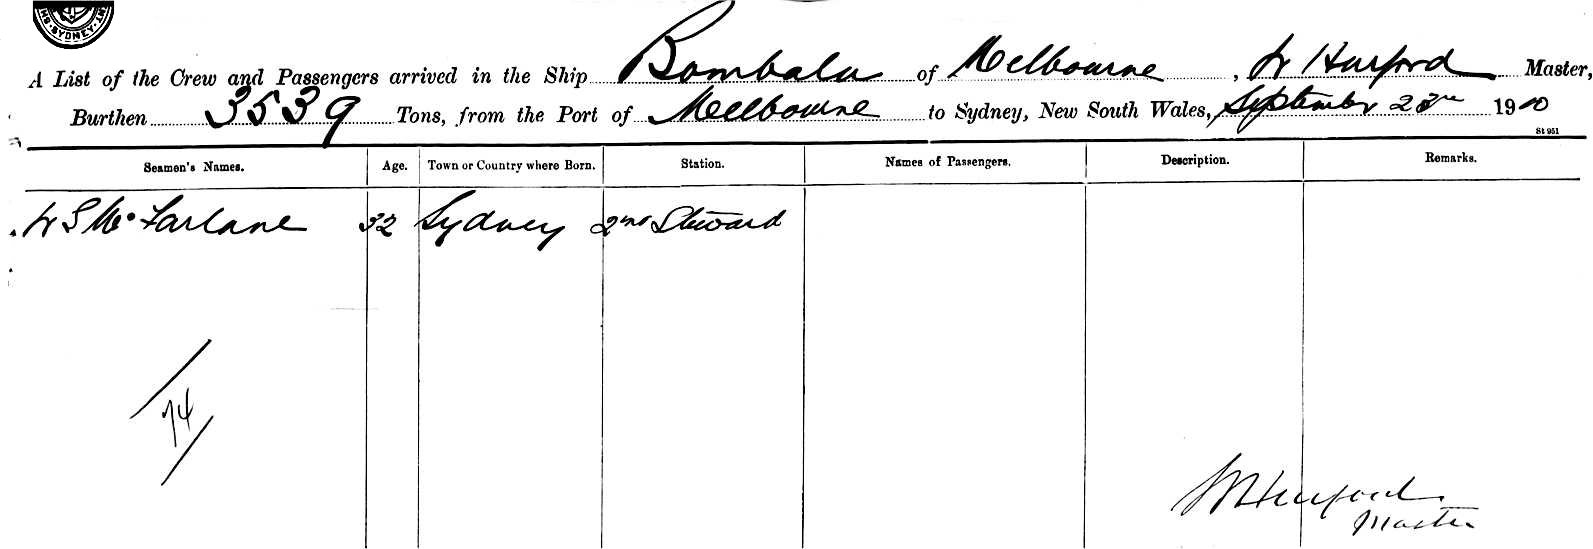 SYDNEY
A List of the Crew and Passengers arrived in the Ship Bombala of Melbourne, W Hurford Master,
Burthen 3539 Tons, from the Port of Melbourne to Sydney, New South Wales, September 23rd 1910
St 951
Seamen's Names. Age. Town or Country where Born. Station. Names of Passengers. Description. Remarks.
W S McFarlane 32 Sydney 2nd Steward
74
Hurford
Master